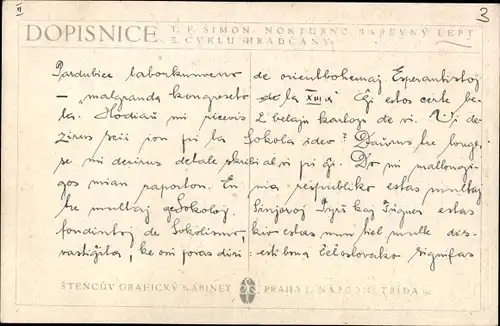 II
3
DOPISNICE
T. F. ŠIMON: NOKTURNO BAREVNÝ LEPT
Z CYKLU HRADČANY
Pardubice laborkunveno de orientbohemaj Esperantistoj
— malgranda kongreseto de la XIII a Ĝi estos certe be-
la. Hodiaŭ mi ricevis 2 belajn kartojn de vi. Vi de-
zirus scii ion pri la Sokola ideo? Daŭrus tre longe,
se mi dezirus detale skribi al vi pri ĝi. Do mi mallongi-
gos mian raporton. En nia respubliko estas multaj
tre multaj geSokoloj. Sinjoroj Tyrš kaj Fügner estas
fondintoj de Sokolismo, kio estas nun tiel multe dis-
vastiĝita, ke oni povas diri: esti bona Ĉeĥoslovako signifas
ŠTENCŮV GRAFICKÝ KABINET PRAHA I., NÁRODNÍ TŘÍDA